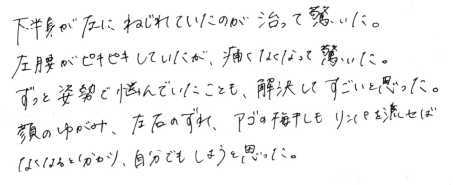 下半身が左にねじれていたのが治って驚いた。
左腰がピキピキしていたが、痛くなくなって驚いた。
ずっと姿勢で悩んでいたことも、解決してすごいと思った。
顔のゆがみ、左右のずれ、アゴの梅干しもリンパを流せば
なくなると分かり、自分でもしようと思った。